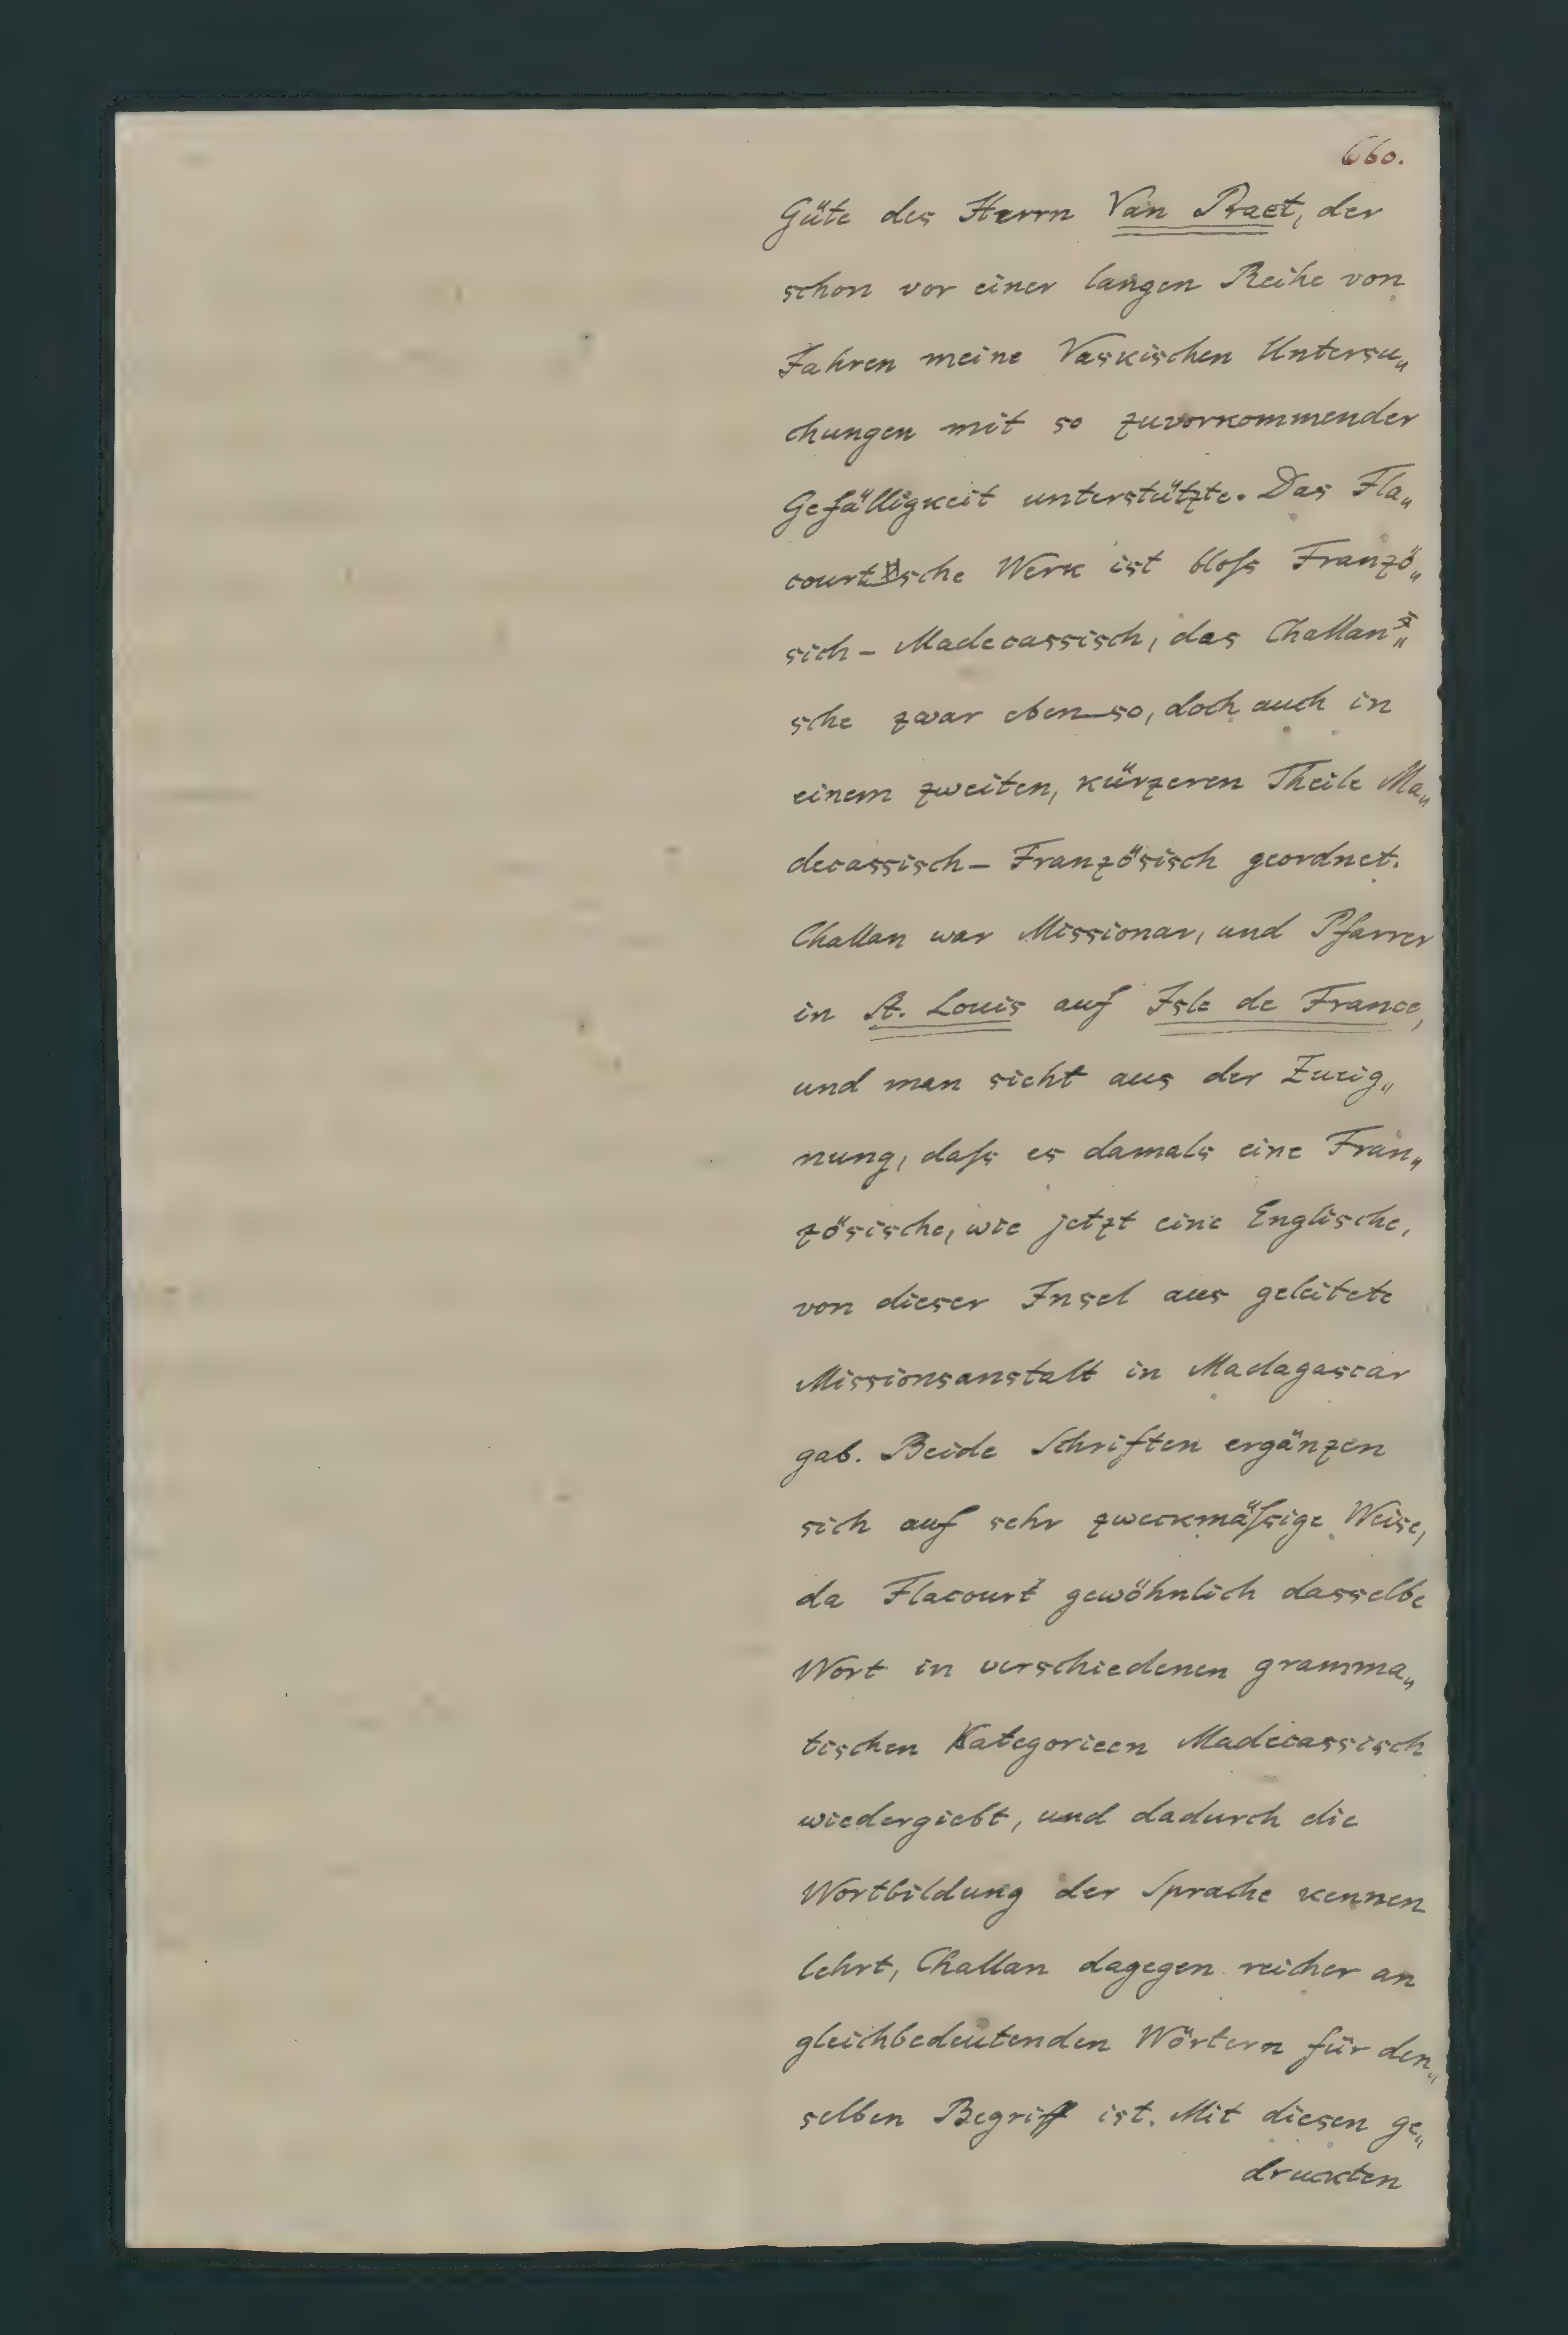 660.
Güte des Herrn Van Praet, der
schon vor einer langen Reihe von
Jahren meine Vaskischen Untersu„
chungen mit so zuvorkommender
Gefälligkeit unterstützte. Das Fla„
courtsche Werk ist bloſs Franzö„
sich - Madecassisch, das Challan„
sche zwar eben so, doch auch in
einem zweiten, kürzeren Theile Ma„
decassisch - Französisch geordnet.
Challan war Missionar, und Pfarrer
in St. Louis auf Isle de France,
und man sieht aus der Zueig„
nung, daſs es damals eine Fran„
zösische, wie jetzt eine Englische,
von dieser Insel aus geleitete
Missionsanstalt in Madagascar
gab. Beide Schriften ergänzen
sich auf sehr zweckmäſsige Weise,
da Flacourt gewöhnlich dasselbe
Wort in verschiedenen gramma„
tischen Kategorieen Madecassisch
wiedergiebt, und dadurch die
Wortbildung der Sprache kennen
lehrt, Challan dagegen reicher an
gleichbedeutenden Wörtern für den„
selben Begriff ist. Mit diesen ge„
druckten